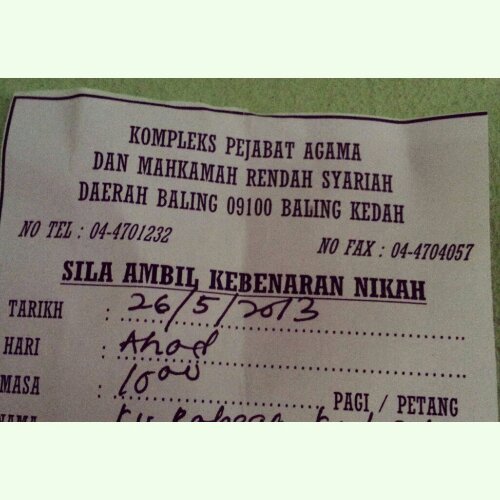 KOMPLEKS PEJABAT AGAMA
DAN MAHKAMAH RENDAH SYARIAH
DAERAH BALING 09100 BALING KEDAH
NO TEL : 04-4701232 NO FAX : 04-4704057
SILA AMBIL KEBENARAN NIKAH
TARIKH : 26/5/2013
HARI : Ahad
MASA : 1000 PAGI / PETANG